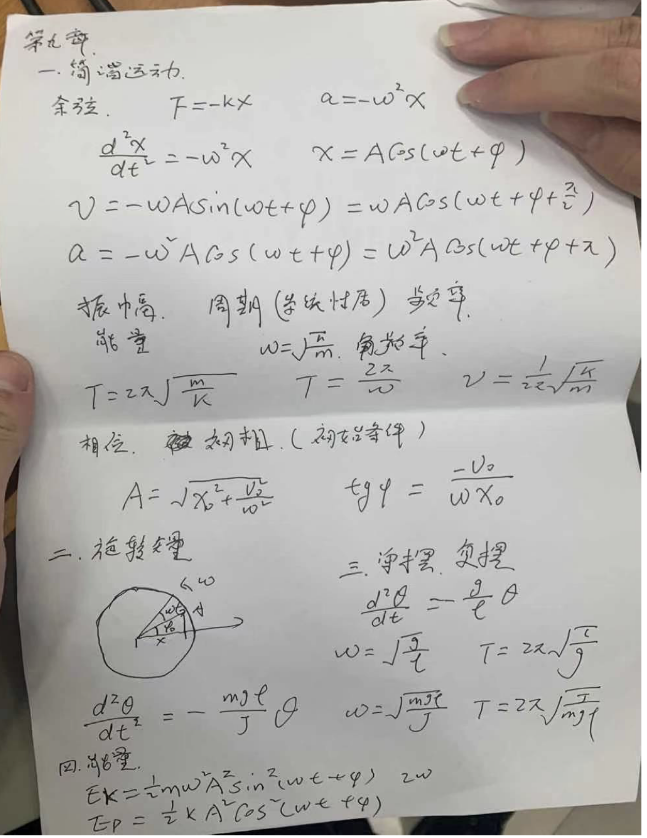 第九章
一.简谐运动.
余弦. F=-kx a=-ω²x
d²x/dt²=-ω²x x=Acos(ωt+φ)
v=-ωAsin(ωt+φ)=ωAcos(ωt+φ+π/2)
a=-ω²Acos(ωt+φ)=ω²Acos(ωt+φ+π)
振幅. 周期(系统性质) 频率.
能量 ω=√(k/m). 角频率.
T=2π√(m/k) T=2π/ω ν=1/2π√(k/m)
相位. 初相.(初始条件)
A=√(x₀²+v₀²/ω²) tgφ=-v₀/ωx₀
二.旋转矢量 三.单摆.复摆
ω
ωt A
φ₀
x
d²θ/dt=-g/l θ
ω=√(g/l) T=2π√(l/g)
d²θ/dt²=-mgl/J θ ω=√(mgl/J) T=2π√(J/mgl)
四.能量.
Ek=½mω²A²sin²(ωt+φ) 2ω
Ep=½kA²cos²(ωt+φ)